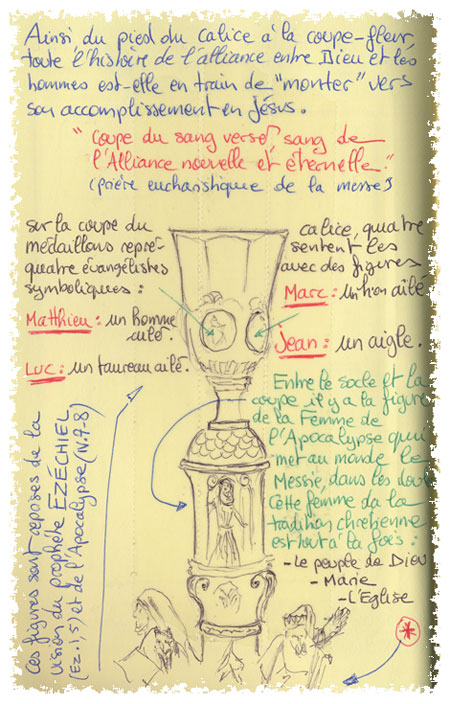 Ainsi du pied du calice à la coupe-fleur
toute l'histoire de l'alliance entre Dieu et les
hommes est-elle en train de "monter" vers
son accomplissement en Jésus.
"Coupe du sang versé, sang de
l'Alliance nouvelle et éternelle."
(prière eucharistique de la messe)
sur la coupe du calice, quatre
médaillons représentent les
quatre évangélistes avec des figures
symboliques :
Marc : Un lion ailé
Matthieu : un homme
ailé.
Jean : un aigle.
Luc : un taureau ailé.
Entre le socle et la
coupe il y a la figure
de la Femme de
l'Apocalypse qui
met au monde le
Messie, dans les doul
Cette femme ds la
tradition chrétienne
est tout à la fois :
- Le peuple de Dieu
- Marie
- L'Eglise
Ces figures sont reprises de la
vision du prophète EZÉCHIEL
(Ez. 1, 5) et de l'Apocalypse (IV. 7-8)